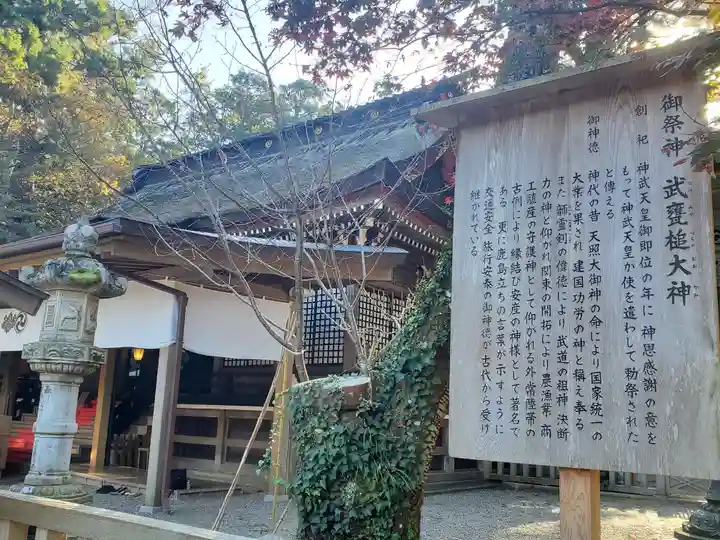 御祭神 武甕槌大神
創祀 神武天皇御即位の年に 神恩感謝の意を
もって神武天皇が使を遣わして勅祭された
と傳える
御神徳 神代の昔 天照大御神の命により国家統一の
大業を果され 建国功労の神と稱え奉る
また韴霊剣の偉徳により 武道の祖神 決断
力の神と仰がれ 関東の開拓により 農漁業 商
工殖産の守護神として仰がれる外 常陸帯の
古例により縁結び安産の神様として著名で
ある 更に鹿島立ちの言葉が示すように
交通安全 旅行安泰の御神徳が古代から受け
継がれている